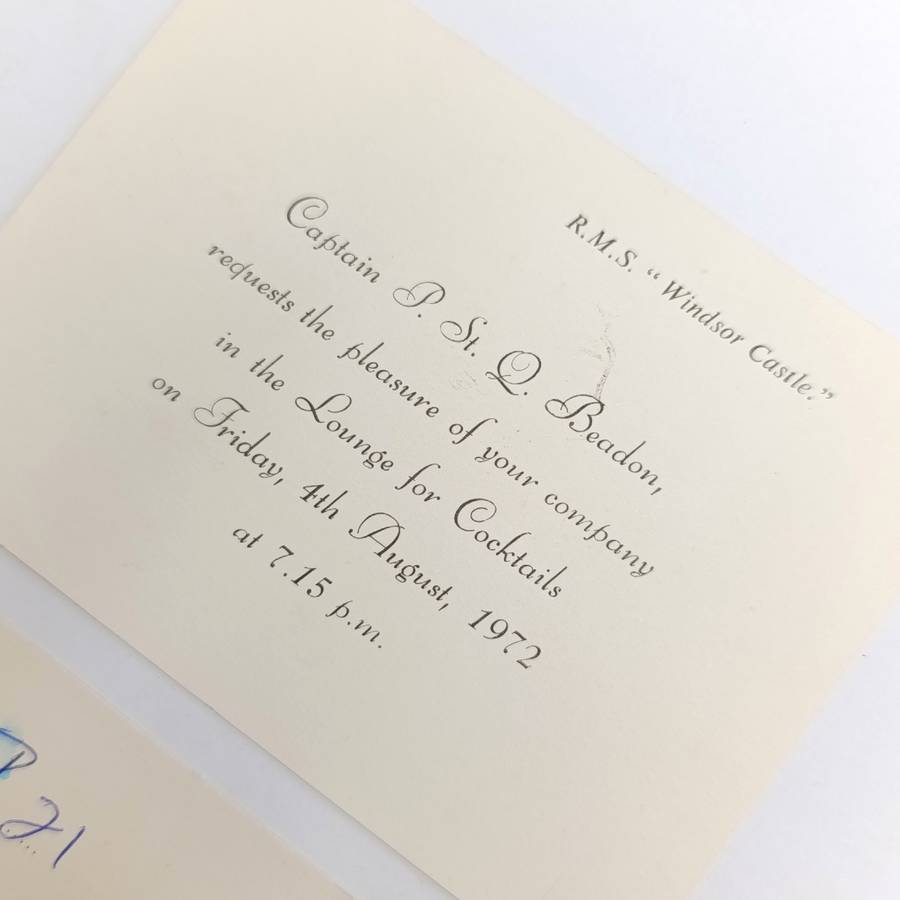 R.M.S. “Windsor Castle.”
Captain P. St. Q. Beadon,
requests the pleasure of your company
in the Lounge for Cocktails
on Friday, 4th August, 1972
at 7.15 p.m.
21